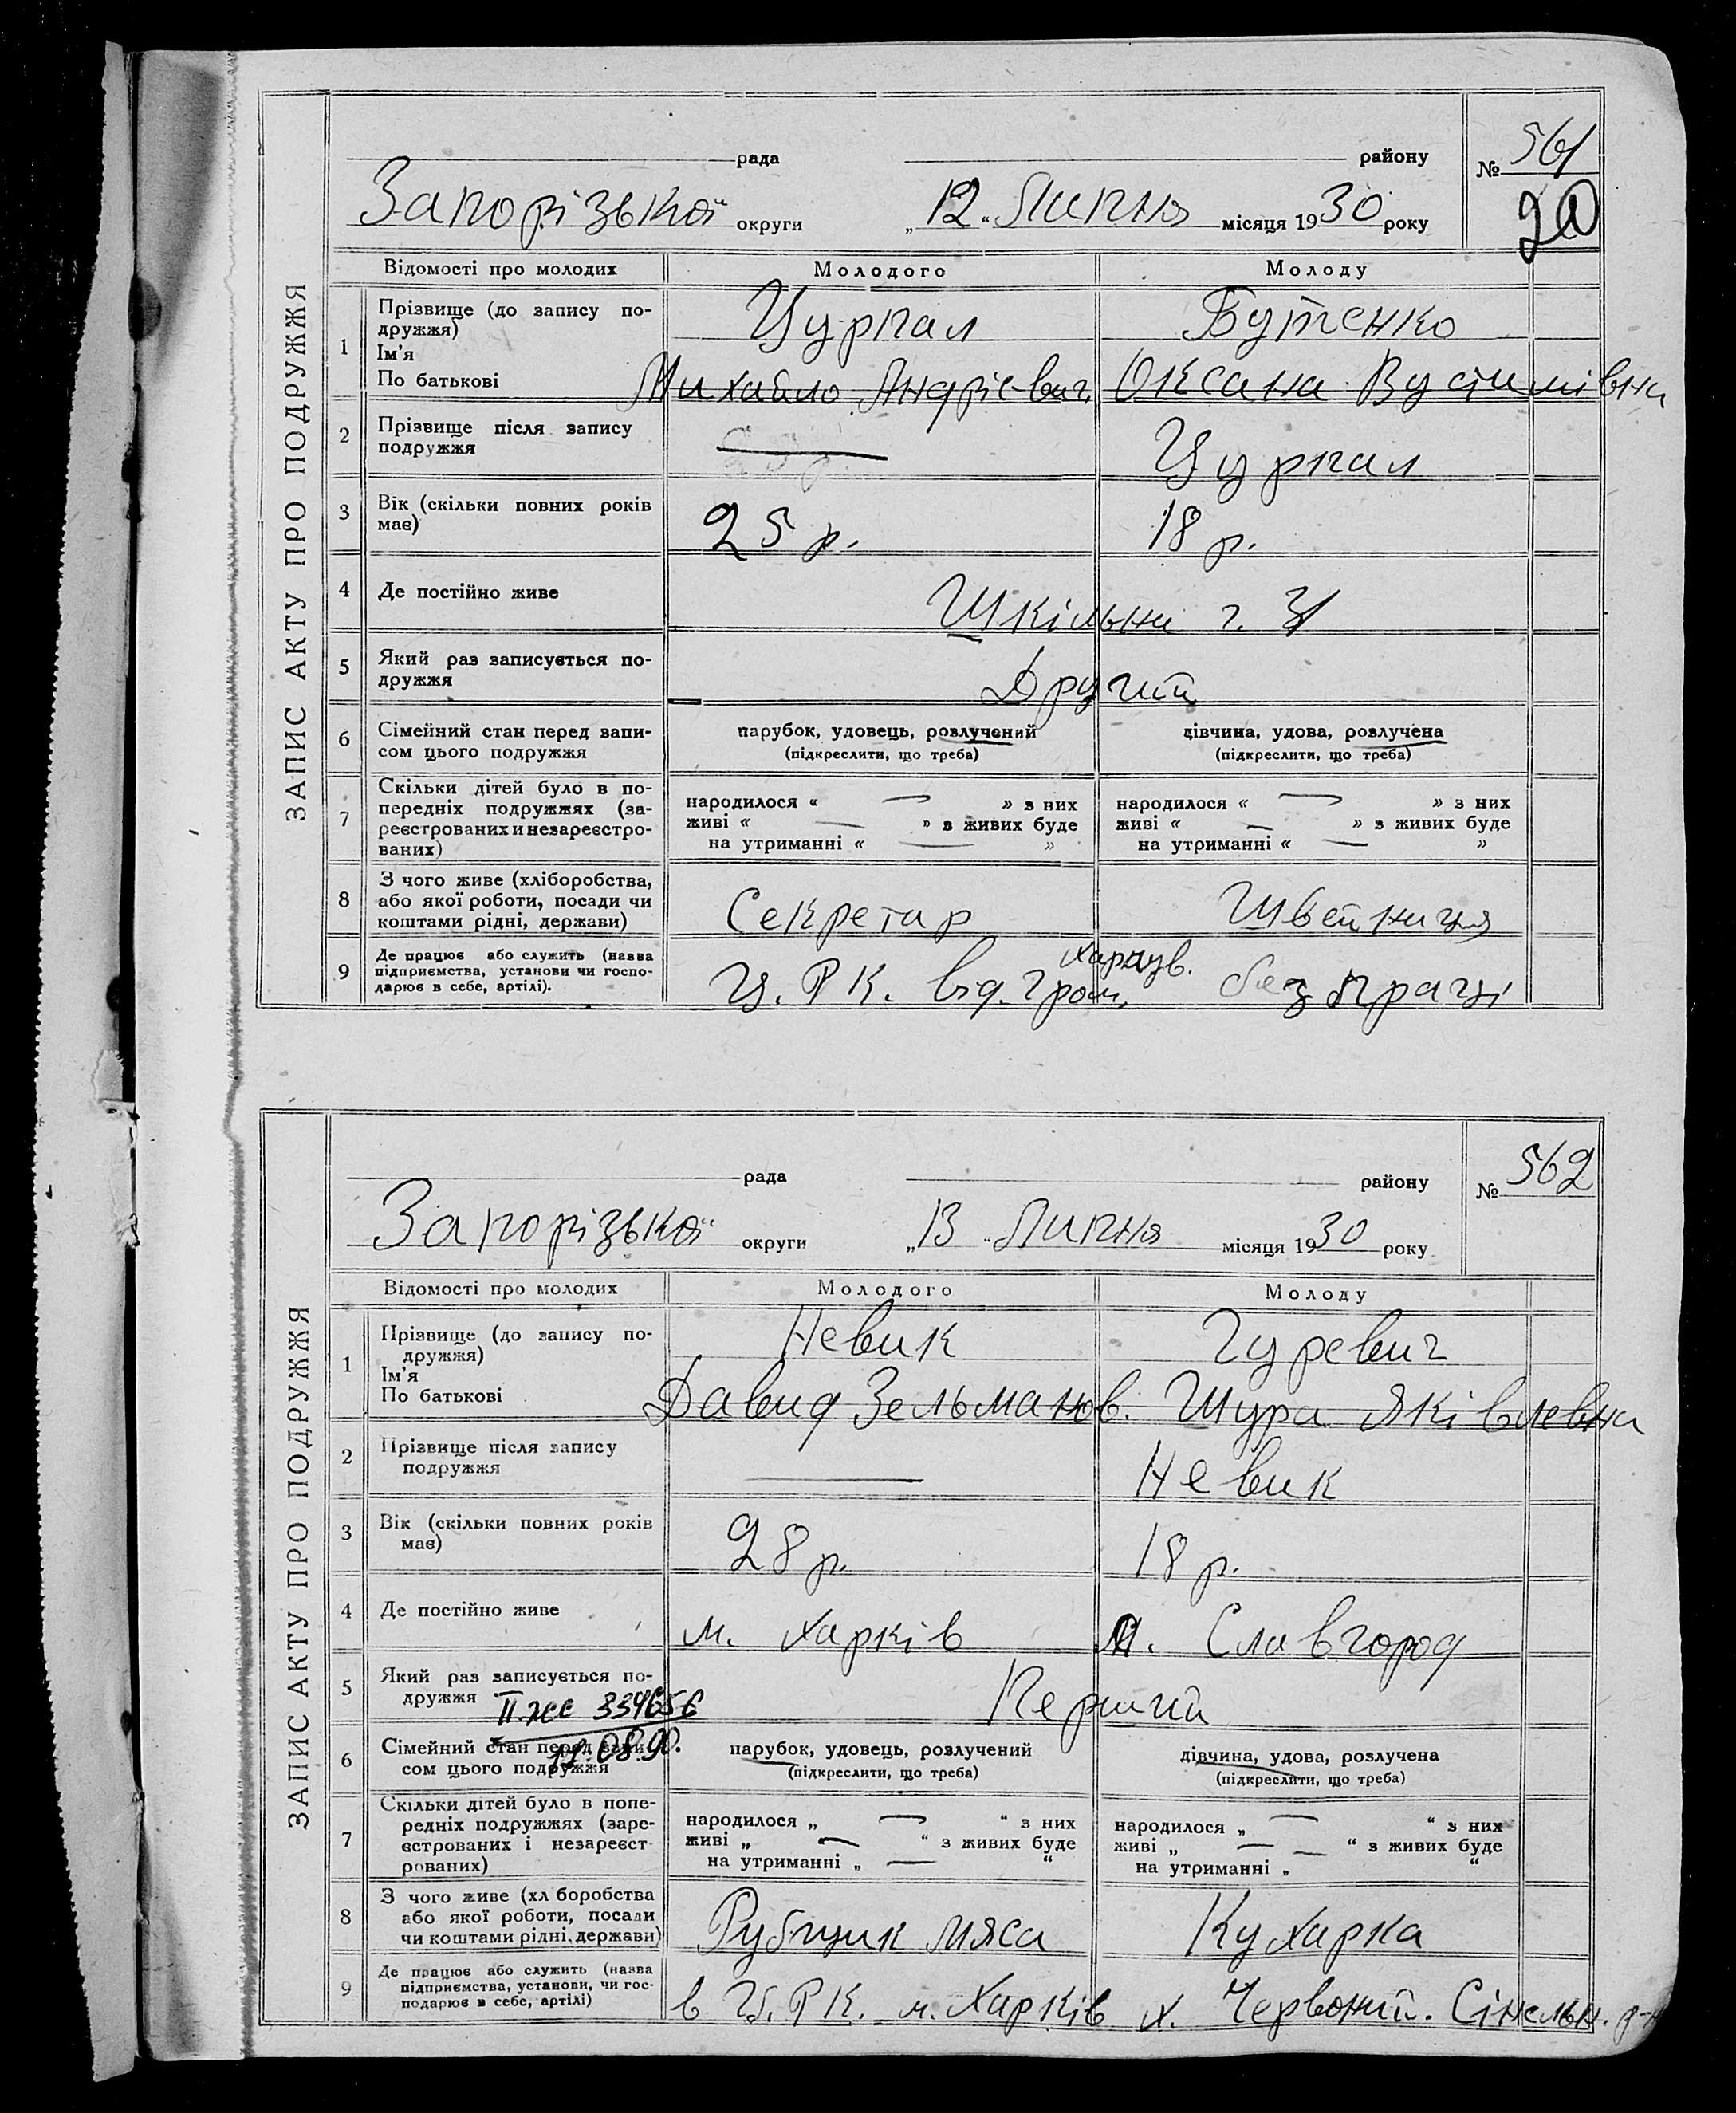 ЗАПИС АКТУ ПРО ПОДРУЖЖЯ
рада району № 561
Запорізької округи „12„ Липня місяця 1930 року 20
Відомості про молодих Молодого Молоду
1 Прізвище (до запису по-
дружжя)
Ім'я
По батькові
Цуркал Бутенко
Михайло Андрієвич. Оксана Вустимівна
2 Прізвище після запису
подружжя
Цуркал
3 Вік (скільки повних років
має)
25 р. 18 р.
4 Де постійно живе Шкільна
5 Який раз записується по-
дружжя
Другий
6 Сімейний стан перед запи-
сом цього подружжя
парубок, удовець, розлучений дівчина, удова, розлучена
(підкреслити, що треба) (підкреслити, що треба)
7 Скільки дітей було в по-
передніх подружжях (за-
реєстрованих и незареєстро-
ваних)
народилося « — » з них народилося « — » з них
живі « — » з живих буде живі « — » з живих буде
на утриманні « — » на утриманні « — »
8 З чого живе (хліборобства,
або якої роботи, посади чи
коштами рідні, держави)
Секретар Швейниця
9 Де працює або служить (назва
підприємства, установи чи госпо-
дарює в себе, артілі).
харчув.
Ц. Р К. від. гром. без праці
ЗАПИС АКТУ ПРО ПОДРУЖЖЯ
рада району № 562
Запорізької округи „13 „ Липня місяця 1930 року
Відомості про молодих Молодого Молоду
1 Прізвище (до запису по-
дружжя)
Ім'я
По батькові
Невик Гуревич
Давид Зельманов. Шура Яківлевна
2 Прізвище після запису
подружжя
— Невик
3 Вік (скільки повних років
має)
28 р. 18 р.
4 Де постійно живе м. Харків м. Славгород
5 Який раз записується по-
дружжя
Перший
II жс 334656
6 Сімейний стан перед запи-
сом цього подружжя
парубок, удовець, розлучений дівчина, удова, розлучена
(підкреслити, що треба) (підкреслити, що треба)
7 Скільки дітей було в попе-
редніх подружжях (заре-
єстрованих і незареєст-
рованих)
народилося „ — “ з них народилося „ — “ з них
живі „ — “ з живих буде живі „ — “ з живих буде
на утриманні „ — “ на утриманні „ — “
8 З чого живе (хл боробства
або якої роботи, посади
чи коштами рідні, держави)
Рубщик мяса Кухарка
9 Де працює або служить (назва
підприємства, установи, чи гос-
подарює в себе, артілі)
в Ц. Р К. м. Харків х. Червоний. Сінельн. р-н